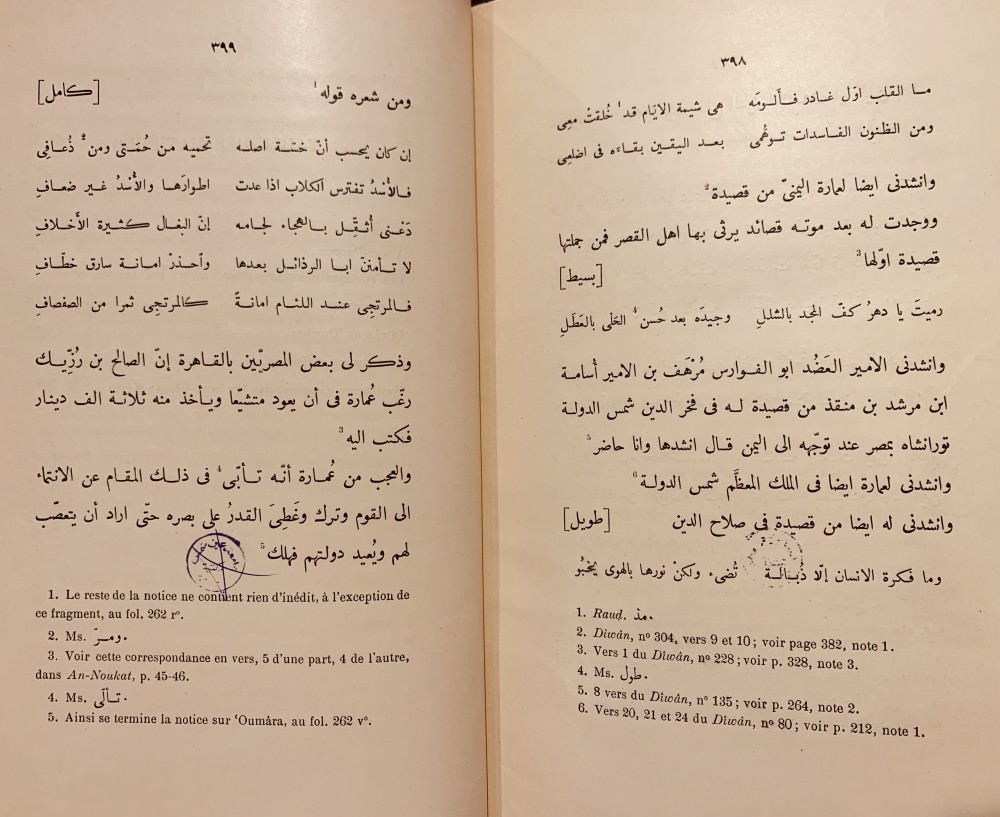 ٣٩٨
ما القلب اوّل غادر فألومَه هى شيمة الايّام قد¹ خُلقتْ معى
ومن الظنون الفاسدات توهُّمى بعد اليقين بقاءه فى اضلعى
وانشدنى ايضا لعمارة اليمنىّ من قصيدة²
ووجدت له بعد موته قصائد يرثى بها اهل القصر فمن جملتها
قصيدة اوّلها³ [بسيط]
رميتَ يا دهرُ كفّ المجد بالشللِ وجيدَه بعد حُسن⁴ الحَلْى بالعَطَلِ
وانشدنى الامير العَضُد ابو الفوارس مُرْهَف بن الامير أسامة
ابن مرشد بن منقذ من قصيدة له فى فخر الدين شمس الدولة
تورانشاه بمصر عند توجّهه الى اليمن قال انشدها وانا حاضر⁵
وانشدنى لعمارة ايضا فى الملك المعظَّم شمس الدولة⁶
وانشدنى له ايضا من قصيدة فى صلاح الدين [طويل]
وما فكرة الانسان إلّا ذُبالة تُضىء ولكنْ نورها بالهوى يخبُو
1. Rauḍ. مذ.
2. Dîwân, nº 304, vers 9 et 10; voir page 382, note 1.
3. Vers 1 du Dîwân, nº 228; voir p. 328, note 3.
4. Ms. طول.
5. 8 vers du Dîwân, nº 135; voir p. 264, note 2.
6. Vers 20, 21 et 24 du Dîwân, nº 80; voir p. 212, note 1.
٣٩٩
ومن شعره قوله¹ [كامل]
إن كان يحسب أنّ خسّة اصله تحميه من حُمَتى ومن² ذُعافى
فالأُسْدُ تفترس الكلاب اذا عدت اطوارَها والأُسْدُ غير ضعافِ
دَعْنى أُثقِّل بالهجاء لجامه إنّ البغال كثيرة الأخلافِ
لا تأمننّ ابا الرذائل بعدها وأحذرْ امانة سارق خطّافِ
فالمرتجى عند اللئام امانةً كالمرتجى ثمرا من الصفصافِ
وذكر لى بعض المصريّين بالقاهرة إنّ الصالح بن رُزّيك
رغّب عُمارة فى أن يعود متشيّعا ويأخذ منه ثلاثة الف دينار
فكتب اليه³
والعجب من عُمارة أنّه تأبّى⁴ فى ذلك المقام عن الانتماء
الى القوم وترك وغَطِىَ القدرُ على بصره حتّى اراد أن يتعصّب
لهم ويُعيد دولتهم فهلك⁵
1. Le reste de la notice ne contient rien d'inédit, à l'exception de
ce fragment, au fol. 262 rº.
2. Ms. ومرّ.
3. Voir cette correspondance en vers, 5 d'une part, 4 de l'autre,
dans An-Noukat, p. 45-46.
4. Ms. تألّى.
5. Ainsi se termine la notice sur ʿOumâra, au fol. 262 vº.